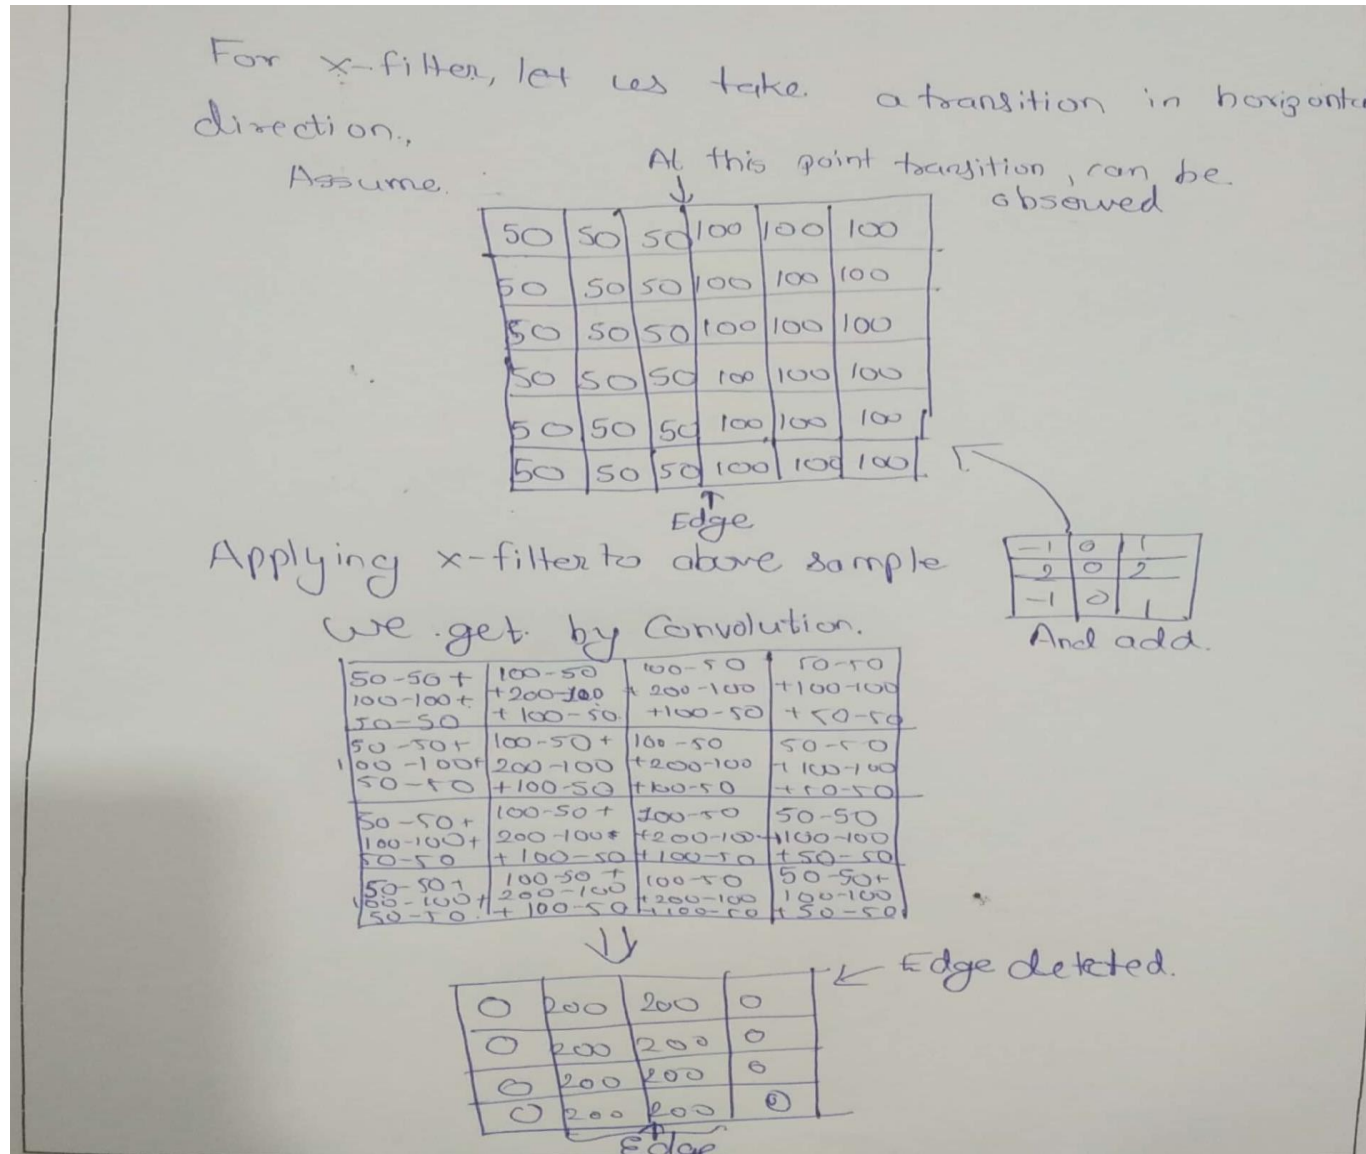 For x-filter, let us take a transition in horizonta
direction.,
Assume.
At this point transition, can be
observed
50 50 50 100 100 100
50 50 50 100 100 100
50 50 50 100 100 100
50 50 50 100 100 100
50 50 50 100 100 100
50 50 50 100 100 100
Edge
-1 0 1
2 0 2
-1 0 1
And add.
Applying x-filter to above sample
we get by Convolution.
50-50+ 100-50 100-50 50-50
100-100+ +200-100 + 200-100 +100-100
50-50 + 100-50 +100-50 + 50-50
50-50+ 100-50+ 100-50 50-50
100-100+ 200-100 +200-100 + 100-100
50-50 +100-50 +100-50 +50-50
50-50+ 100-50+ 100-50 50-50
100-100+ 200-100+ +200-100 +100-100
50-50 + 100-50 +100-50 +50-50
50-50+ 100-50+ 100-50 50-50+
100-100+ 200-100 +200-100 100-100
50-50 + 100-50 +100-50 + 50-50
Edge detected.
0 200 200 0
0 200 200 0
0 200 200 0
0 200 200 0
Edge